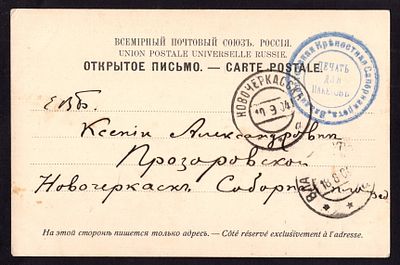 ВСЕМІРНЫЙ ПОЧТОВЫЙ СОЮЗЪ. РОССІЯ.
UNION POSTALE UNIVERSELLE RUSSIE.
ОТКРЫТОЕ ПИСЬМО. — CARTE POSTALE.
НОВОЧЕРКАССКЪ
ПЕЧАТЬ
ДЛЯ
ПАКЕТОВЪ
Крѣпостная Саперная рота
Е.В.Б.
Ксеніи Александровнѣ
Прозоровской
Новочеркаскъ Соборная
На этой сторонѣ пишется только адресъ. — Côté réservé exclusivement à l'adresse.